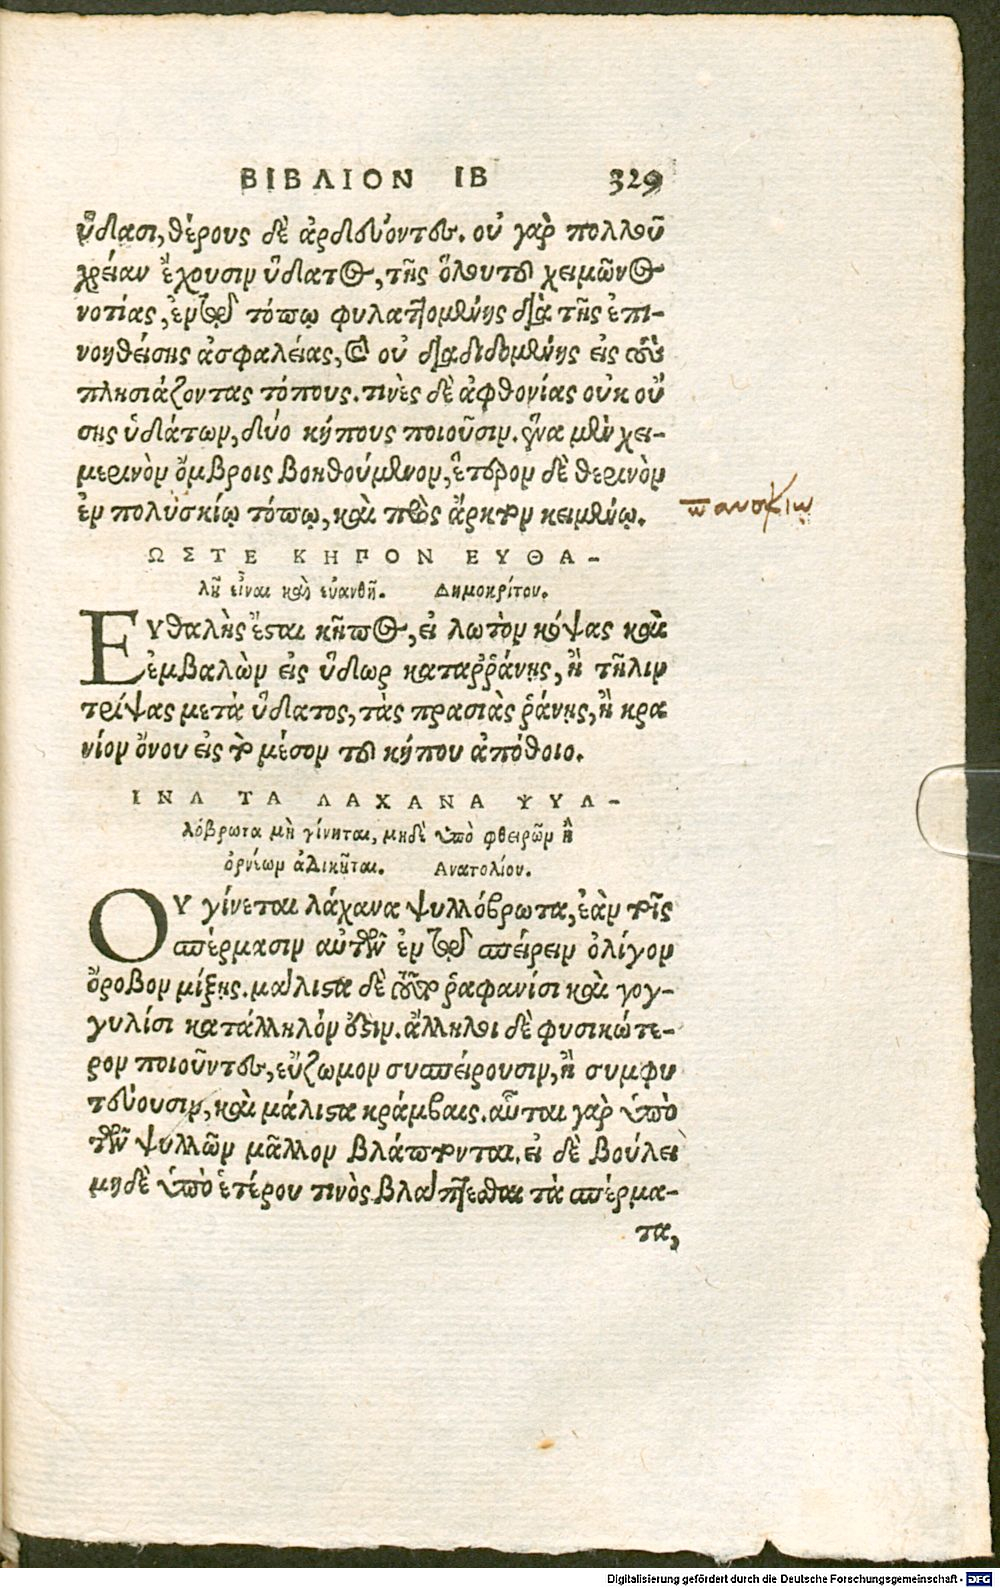 ΒΙΒΛΙΟΝ ΙΒ 329
ὕδασι, θέρους δὲ ἀρδεύοντες. οὐ γὰρ πολλοῦ
χρείαν ἔχουσιν ὕδατος, τῆς ὅλου τοῦ χειμῶνος
νοτίας, ἐν τῷ τόπῳ φυλαττομένης διὰ τῆς ἐπι-
νοηθείσης ἀσφαλείας, καὶ οὐ διαδιδομένης εἰς τοὺς
πλησιάζοντας τόπους. τινὲς δὲ ἀφθονίας οὐκ οὔ
σης ὑδάτων, δύο κήπους ποιοῦσιν. ἕνα μὲν χει-
μερινὸν ὄμβροις βοηθούμενον, ἕτερον δὲ θερινὸν
ἐν πολυσκίῳ τόπῳ, καὶ πρὸς ἄρκτον κειμένῳ.
πανσκίω
ΩΣΤΕ ΚΗΠΟΝ ΕΥΘΑ-
λῆ εἶναι καὶ εὐανθῆ. Δημοκρίτου.
Ευθαλὴς ἔσται κῆπος, εἰ λωτὸν κόψας καὶ
ἐμβαλὼν εἰς ὕδωρ καταῤῥάνῃς, ἢ τῆλιν
τρίψας μετὰ ὕδατος, τὰς πρασιὰς ῥάνῃς, ἢ κρα
νίον ὄνου εἰς τὸ μέσον τοῦ κήπου ἀπόθοιο.
ΙΝΑ ΤΑ ΛΑΧΑΝΑ ΨΥΛ-
λόβρωτα μὴ γίνηται, μηδὲ ὑπὸ φθειρῶν ἢ
ὀρνέων ἀδικῆται. Ανατολίου.
ΟΥ γίνεται λάχανα ψυλλόβρωτα, ἐὰν τοῖς
σπέρμασιν αὐτῶν ἐν τῷ σπείρειν ὀλίγον
ὄροβον μίξῃς. μάλιστα δὲ τοῦτο ῥαφανίσι καὶ γογ-
γυλίσι κατάλληλόν ἐστιν. ἄλλοι δὲ φυσικώτε-
ρον ποιοῦντες, εὔζωμον συσπείρουσιν, ἢ συμφυ
τεύουσιν, καὶ μάλιστα κράμβαις. αὗται γὰρ ὑπὸ
τῶν ψυλλῶν μᾶλλον βλάπτονται. εἰ δὲ βούλει
μηδὲ ὑπὸ ἑτέρου τινὸς βλάπτεσθαι τὰ σπέρμα-
τα,
Digitalisierung gefördert durch die Deutsche Forschungsgemeinschaft - DFG